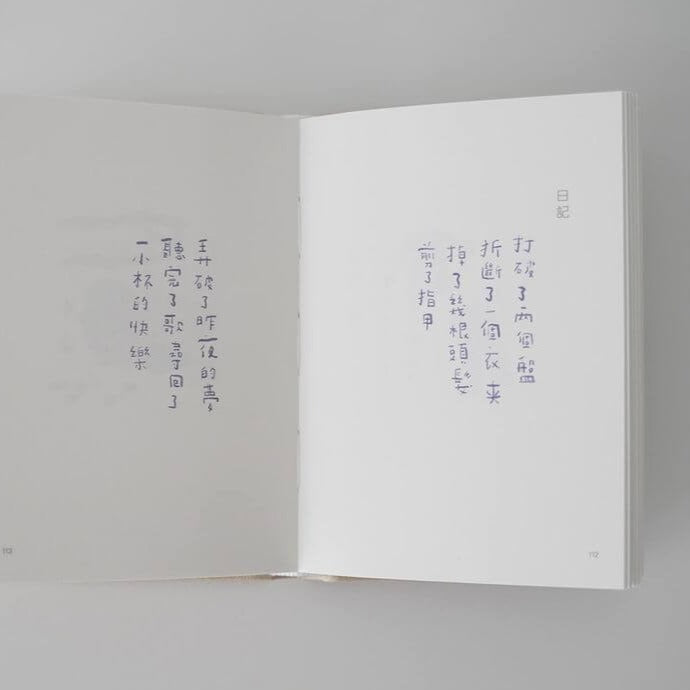 日記
打破了兩個盤
折斷了一個衣夾
掉了幾根頭髮
剪了指甲
112
弄破了昨夜的夢
聽完了歌尋回了
一小杯的快樂
113